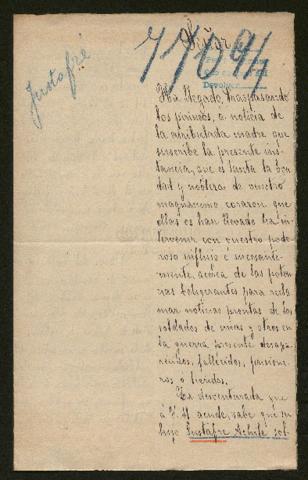 Señor
Justafré
77094
Devolver
Ha llegado, traspasando
los pirineos, a noticia de
la atribulada madre que
suscribe la presente ins-
tancia, que es tanta la bon-
dad y nobleza de vuestro
magnanimo corazon que
ellas os han llevado ha in-
tervenir con vuestro pode-
roso influjo e incesante-
mente, acerca de las poten-
cias beligerantes para recla-
mar noticias prontas de los
soldados de unas y otros en
la guerra presente desapa-
recidos, fallecidos, prisione-
ros o heridos.
La desventurada que
á V. M. acude, sabe que su
hijo Justafre Achile sol-